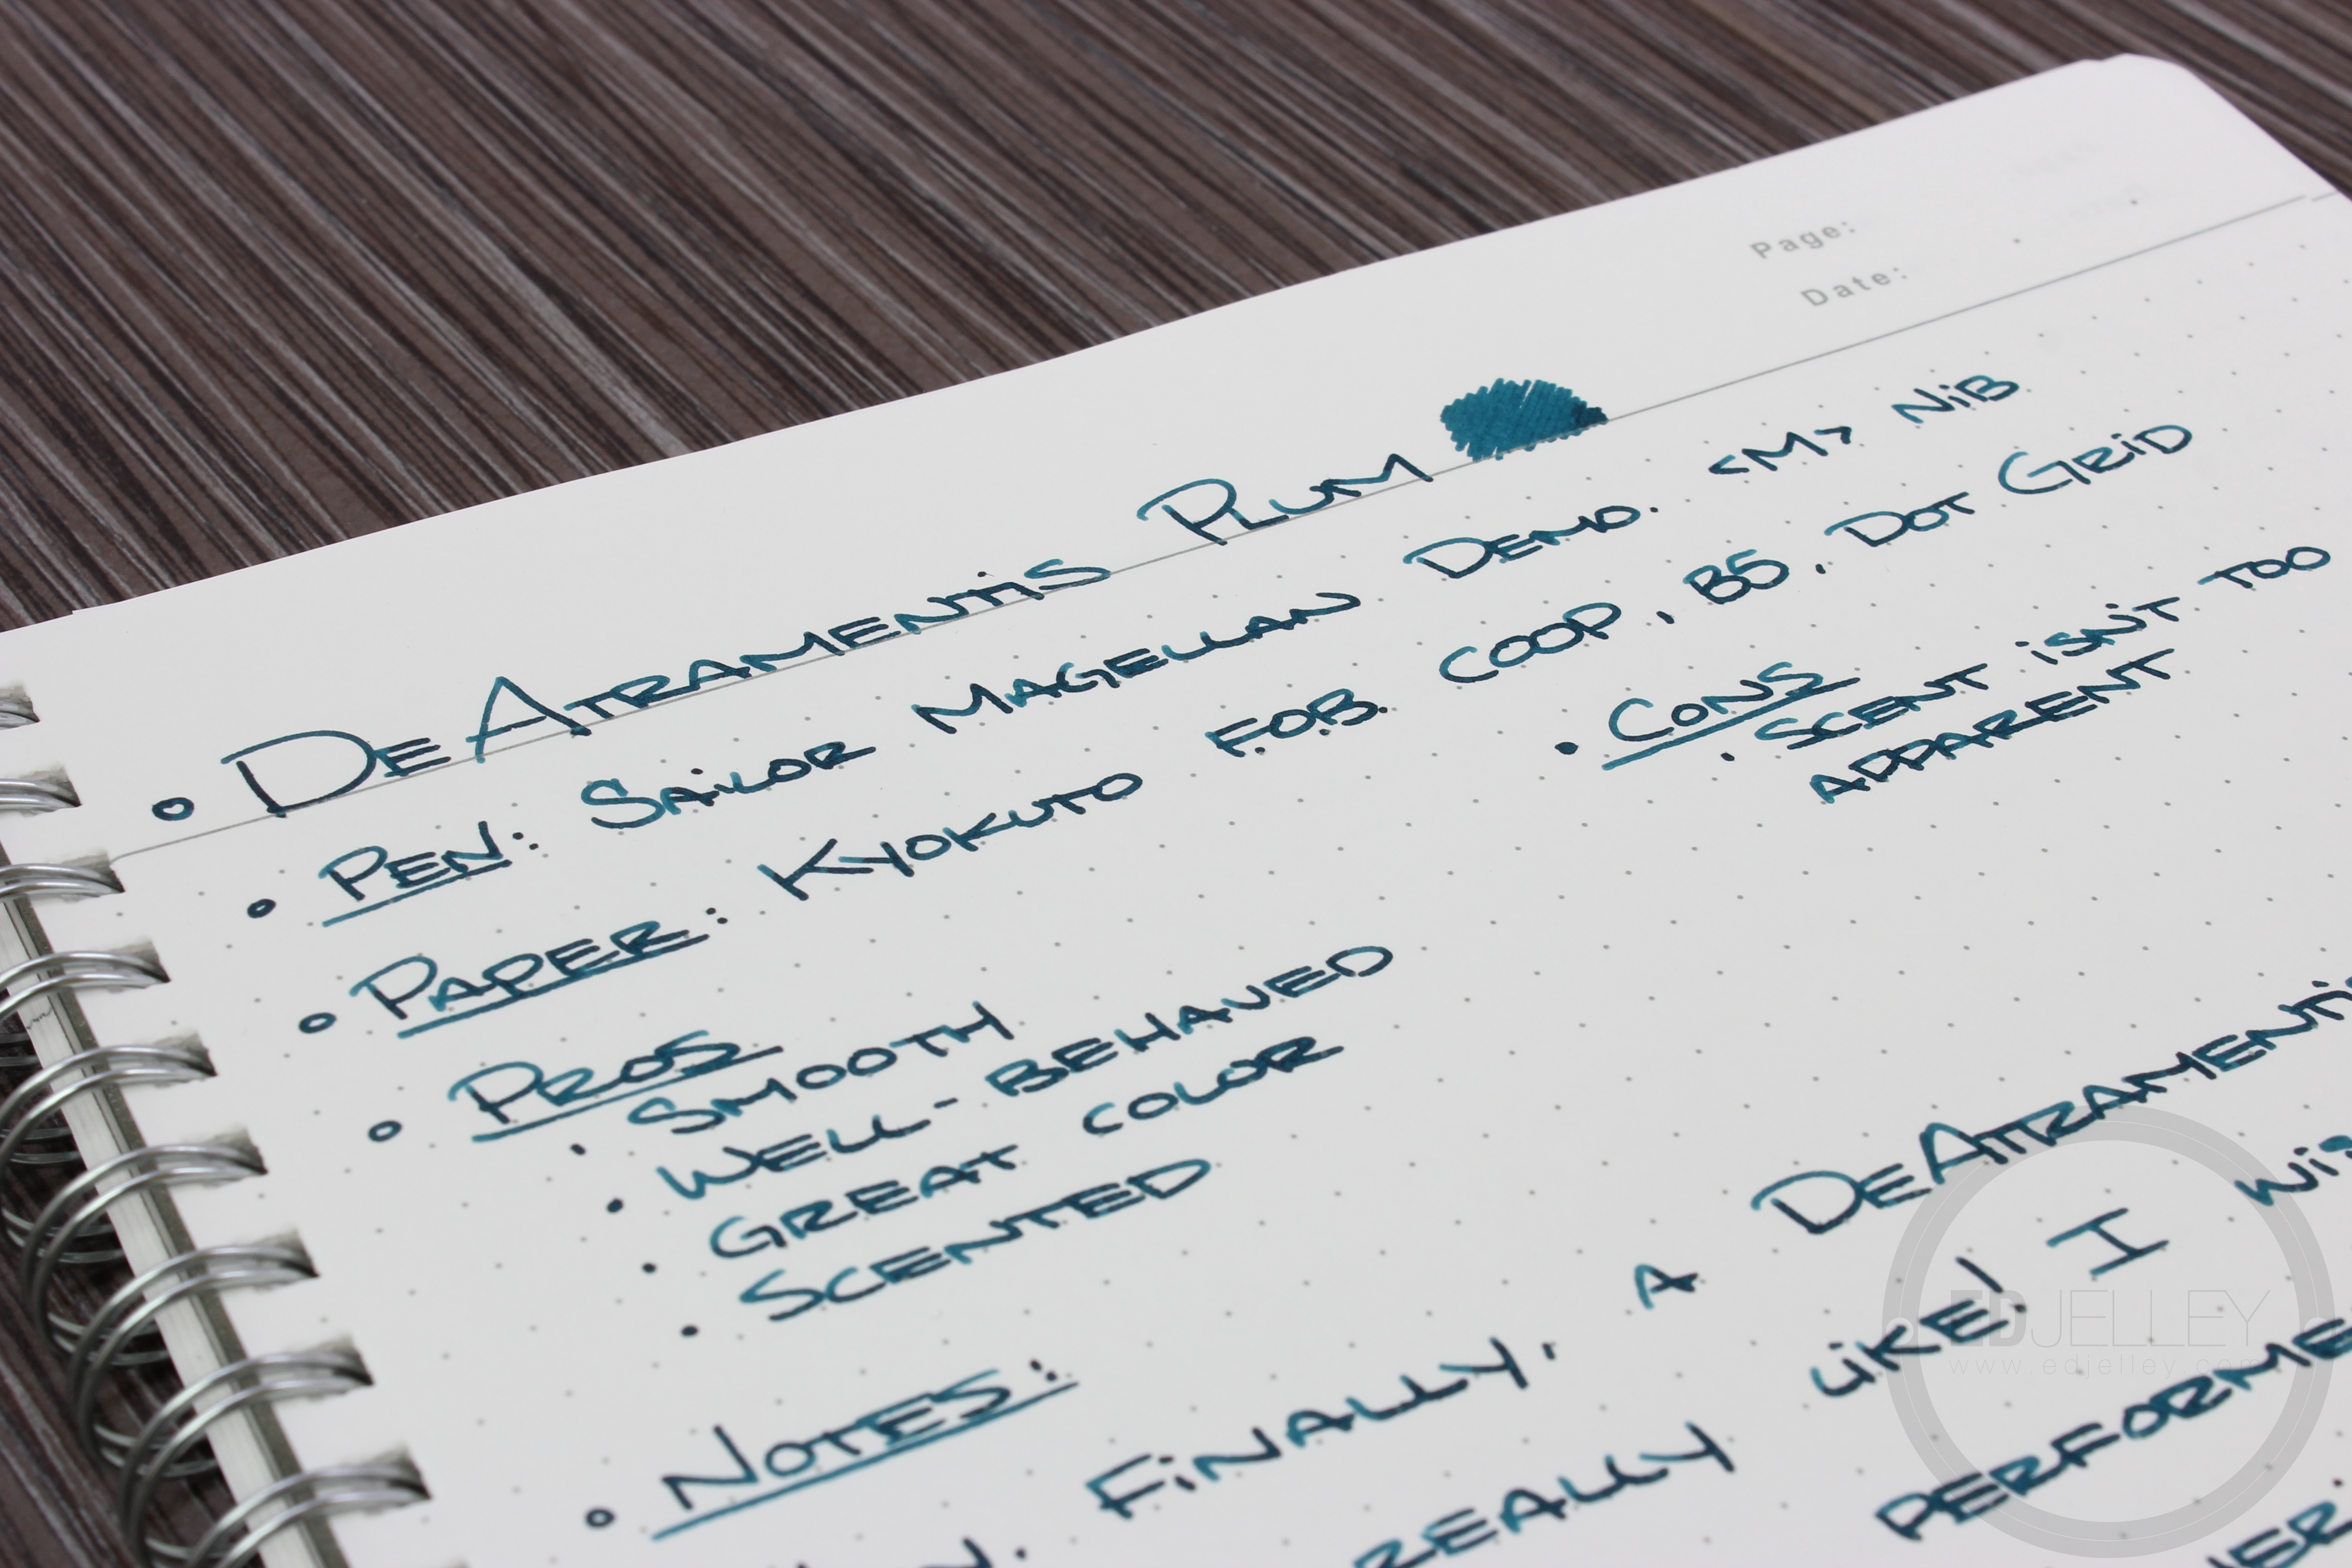 Page:
Date:
DE ATRAMENTiS PLUM
PEN: SAiLOR MAGELLAN DEMO. <M> NiB
PAPER: KYOKUTO F.O.B. COOP, B5, DOT GRiD
PROS
SMOOTH
WELL-BEHAVED
GREAT COLOR
SCENTED
CONS
SCENT iSN'T TOO
APPARENT
NOTES: FiNALLY. A DEATRAMENTiS
REALLY LiKE! I
PERFORME
EDJELLEY
www.edjelley.com